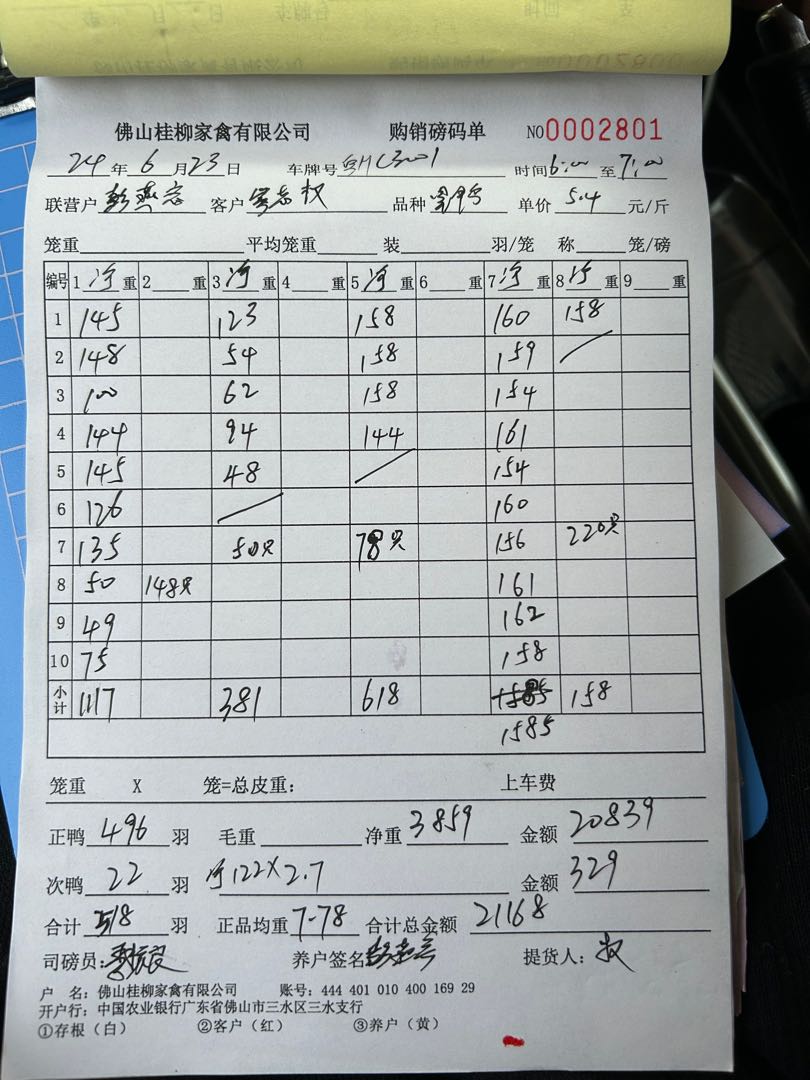 佛山桂柳家禽有限公司 购销磅码单 NO0002801
24年6月23日 车牌号 时间6:00至7:00
联营户 客户 权 品种 单价5.4元/斤
笼重 平均笼重 装 羽/笼 称 笼/磅
编号 1净重 2重 3净重 4重 5净重 6重 7净重 8净重 9重
1 145 123 158 160 158
2 148 54 158 159
3 100 62 158 154
4 144 94 144 161
5 145 48 154
6 126 160
7 135 50只 78只 156 220只
8 50 148只 161
9 49 162
10 75 158
小计 1117 381 618 1585 158
1585
笼重 X 笼=总皮重： 上车费
正鸭496羽 毛重 净重3859 金额20839
次鸭22羽 净122×2.7 金额329
合计518羽 正品均重7-78 合计总金额21168
司磅员： 养户签名 提货人：权
户 名：佛山桂柳家禽有限公司 账号：444 401 010 400 169 29
开户行：中国农业银行广东省佛山市三水区三水支行
①存根（白） ②客户（红） ③养户（黄）